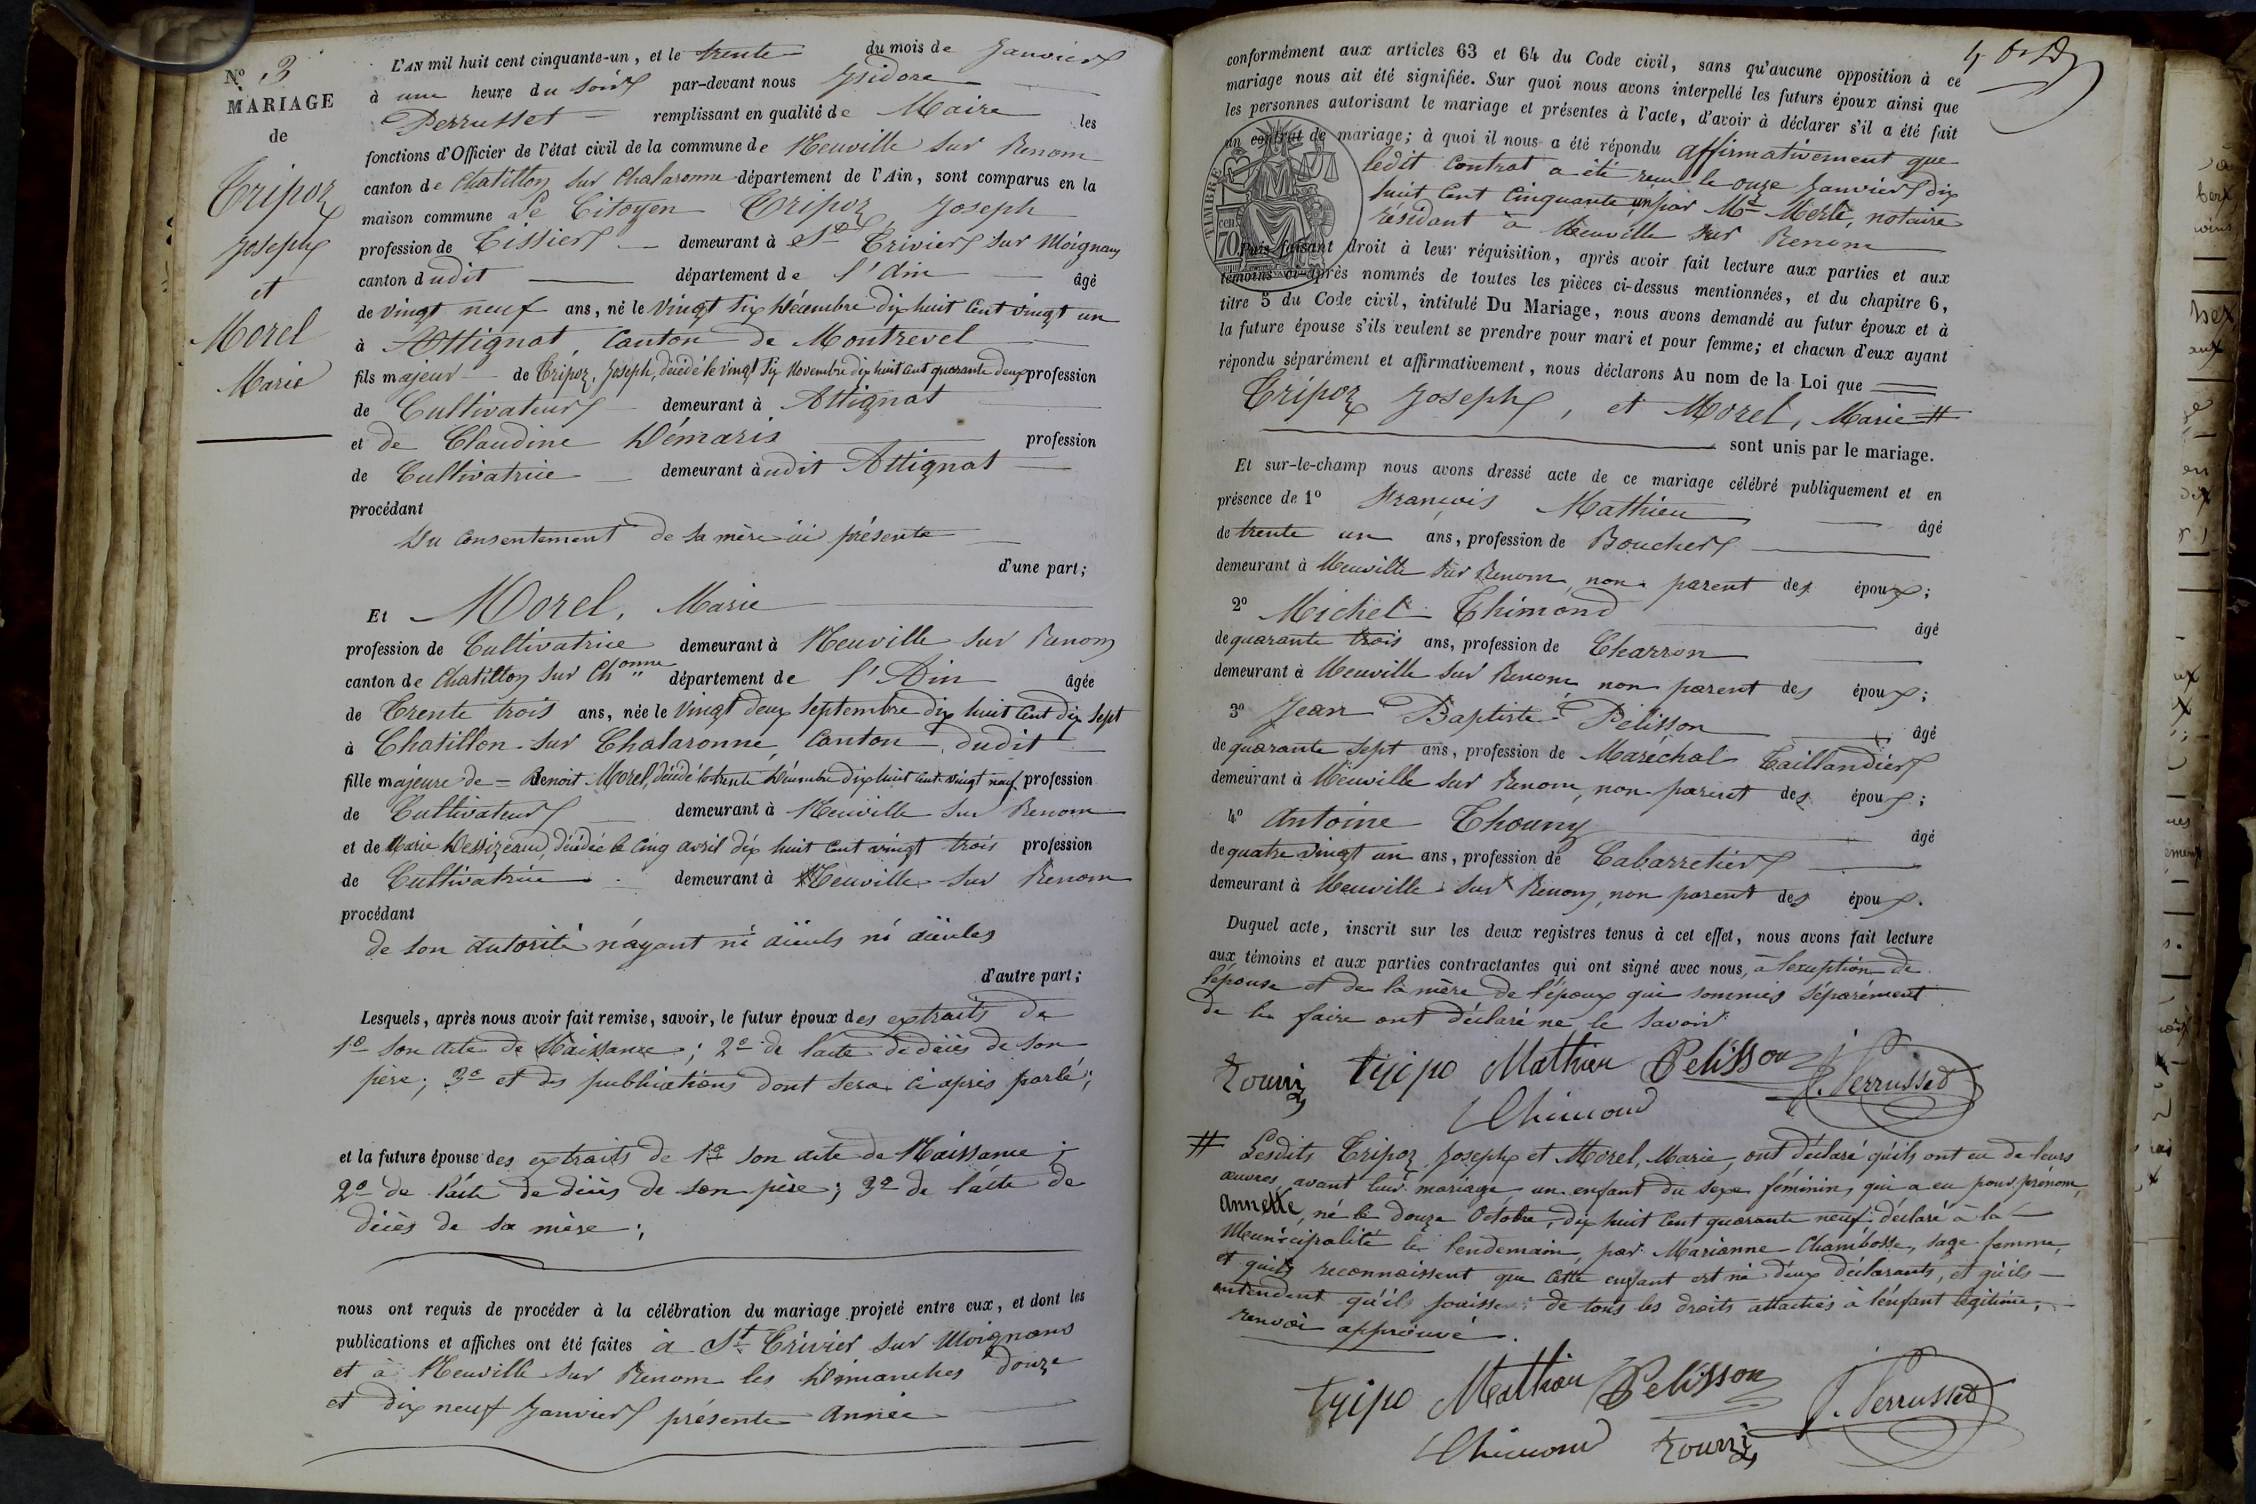 N° 3
MARIAGE
de
Tripoz
Joseph
et
Morel
Marie
L'AN mil huit cent cinquante-un, et le trente du mois de Janvier
à une heure du soir par-devant nous Isidore
Perrusset remplissant en qualité de Maire les
fonctions d'Officier de l'état civil de la commune de Neuville sur Renom
canton de Chatillon sur Chalaronne département de l'Ain, sont comparus en la
maison commune Le Citoyen Tripoz, Joseph
profession de Tissier demeurant à St Trivier sur Moignans
canton dudit département de l'Ain âgé
de vingt neuf ans, né le vingt six Décembre dix huit cent vingt un
à Attignat, Canton de Montrevel
fils majeur de Tripoz, Joseph, décédé le vingt six Novembre dix huit cent quarante deux profession
de Cultivateur demeurant à Attignat
et de Claudine Démaris profession
de Cultivatrice demeurant àudit Attignat
procédant
Du consentement de sa mère ici présente
d'une part;
Et Morel, Marie
profession de Cultivatrice demeurant à Neuville sur Renom
canton de Chatillon sur Chonne département de l'Ain âgée
de Trente trois ans, née le vingt deux Septembre dix huit cent dix sept
à Chatillon sur Chalaronne, Canton dudit
fille majeure de = Benoit Morel, décédé le trente Décembre dix huit cent vingt neuf profession
de Cultivateur demeurant à Neuville sur Renom
et de Marie Dessizeaud, décédée le cinq avril dix huit cent vingt trois profession
de Cultivatrice demeurant à Neuville sur Renom
procédant
de son autorité n'ayant ni aïeuls ni aïeules
d'autre part;
Lesquels, après nous avoir fait remise, savoir, le futur époux des extraits de
1° son acte de Naissance; 2° de l'acte de décès de son
père; 3° et des publications dont sera ci après parlé;
et la future épouse des extraits de 1° son acte de Naissance;
2° de l'acte de décès de son père; 3° de l'acte de
décès de sa mère;
nous ont requis de procéder à la célébration du mariage projeté entre eux, et dont les
publications et affiches ont été faites à St Trivier sur Moignans
et à Neuville sur Renom les Dimanches douze
et dix neuf Janvier présente année
conformément aux articles 63 et 64 du Code civil, sans qu'aucune opposition à ce
mariage nous ait été signifiée. Sur quoi nous avons interpellé les futurs époux ainsi que
les personnes autorisant le mariage et présentes à l'acte, d'avoir à déclarer s'il a été fait
un contrat de mariage; à quoi il nous a été répondu affirmativement que
ledit contrat a été reçu le onze Janvier dix
huit cent cinquante un par Me Merle, notaire
résidant à Neuville sur Renom
TIMBRE
70 cen.
Puis faisant droit à leur réquisition, après avoir fait lecture aux parties et aux
témoins ci-après nommés de toutes les pièces ci-dessus mentionnées, et du chapitre 6,
titre 5 du Code civil, intitulé Du Mariage, nous avons demandé au futur époux et à
la future épouse s'ils veulent se prendre pour mari et pour femme; et chacun d'eux ayant
répondu séparément et affirmativement, nous déclarons Au nom de la Loi que
Tripoz Joseph, et Morel, Marie #
sont unis par le mariage.
Et sur-le-champ nous avons dressé acte de ce mariage célébré publiquement et en
présence de 1° François Mathieu âgé
de trente un ans, profession de Boucher
demeurant à Neuville sur Renom, non parent des époux;
2° Michel Thimond âgé
de quarante trois ans, profession de Charron
demeurant à Neuville sur Renom non parent des époux;
3° Jean Baptiste Pélisson âgé
de quarante sept ans, profession de Maréchal Taillandier
demeurant à Neuville sur Renom, non parent des époux;
4° Antoine Thouny âgé
de quatre vingt un ans, profession de Cabarretier
demeurant à Neuville sur Renom, non parent des époux.
Duquel acte, inscrit sur les deux registres tenus à cet effet, nous avons fait lecture
aux témoins et aux parties contractantes qui ont signé avec nous, à l'exception de
l'épouse et de la mère de l'époux qui sommées séparément
de le faire ont déclaré ne le savoir
touni tripo Mathieu Pelisson J. Perrusset
Thimond
# Lesdits Tripoz Joseph et Morel, Marie, ont déclaré qu'ils ont eu de leurs
œuvres avant leur mariage un enfant du sexe féminin, qui a eu pour prénom,
Annette, né le douze Octobre, dix huit cent quarante neuf, déclaré à la
Municipalité le lendemain, par Marianne Chambosse, sage femme,
et qu'ils reconnaissent que cette enfant est né d'eux déclarants, et qu'ils
entendent qu'il jouisse de tous les droits attachés à l'enfant légitime,
renvoi approuvé.
tripo Mathieu Pelisson J. Perrusset
Thimond touni